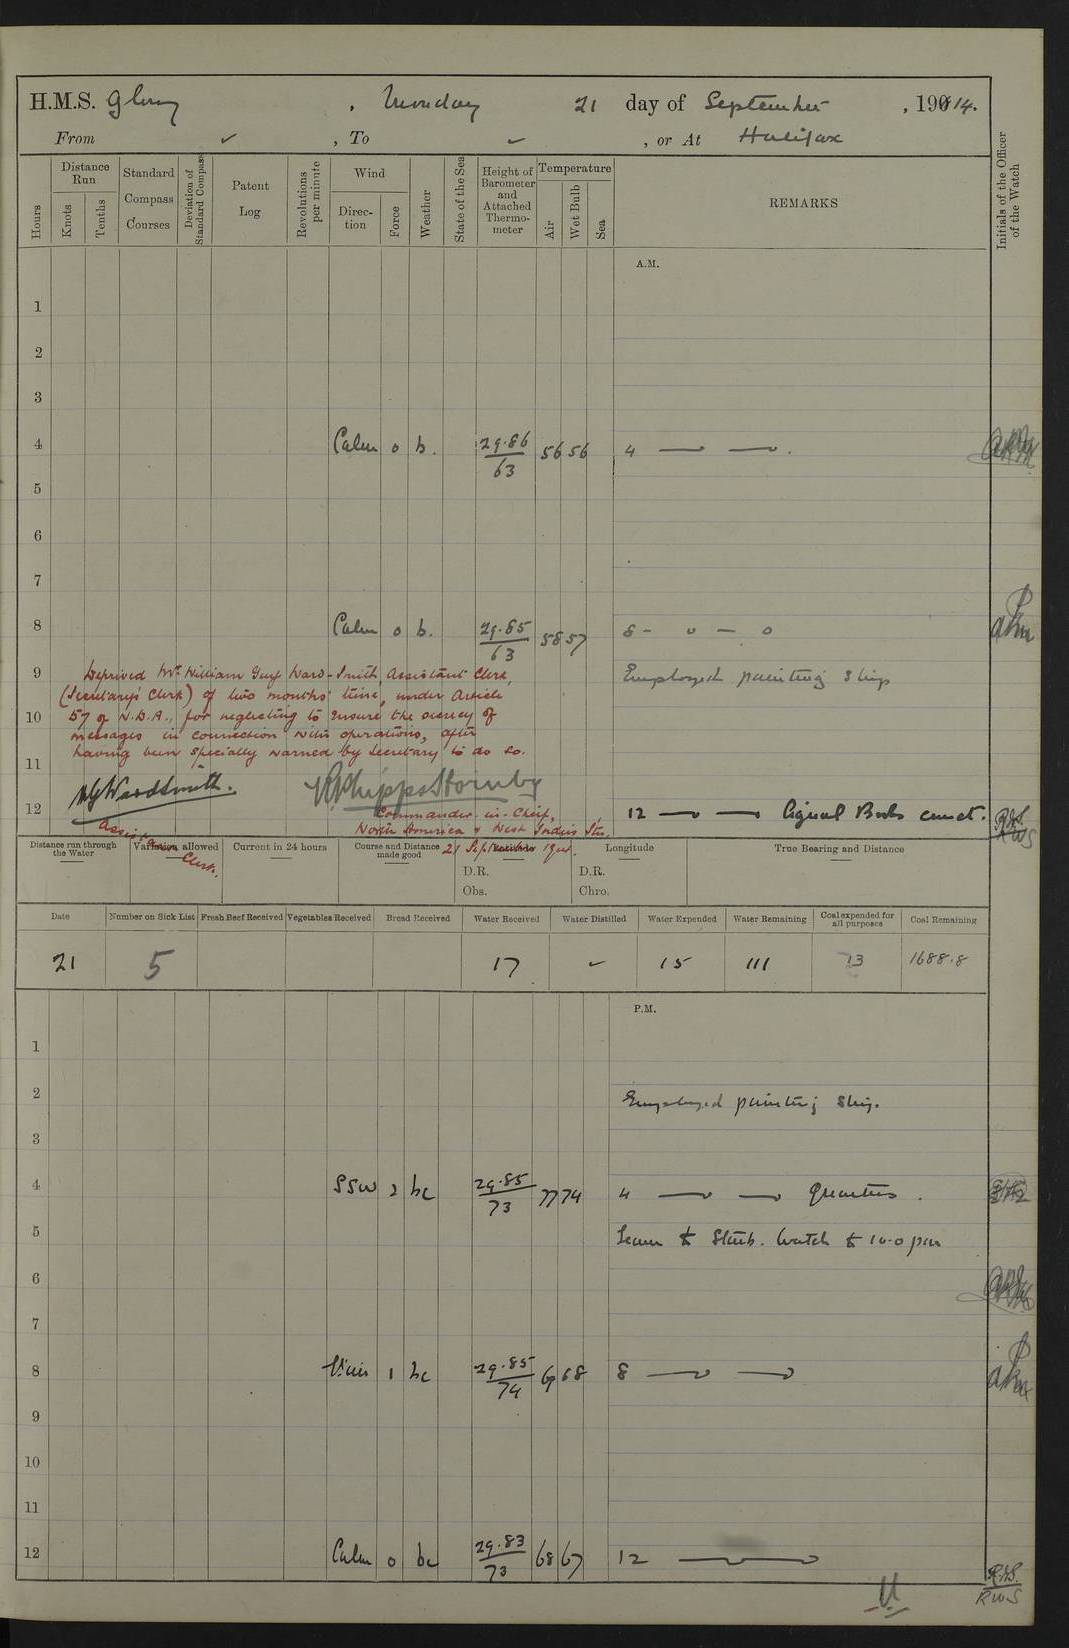 H.M.S. Glory, Monday 21 day of September, 1914.
From ✓, To ✓, or At Halifax
Hours
Distance Run
Knots
Tenths
Standard Compass Courses
Deviation of Standard Compass
Patent Log
Revolutions per minute
Wind
Direction
Force
Weather
State of the Sea
Height of Barometer and Attached Thermometer
Temperature
Air
Wet Bulb
Sea
REMARKS
Initials of the Officer of the Watch
A.M.
1
2
3
4 Calm 0 b. 29.86 / 63 56 56 4
5
6
7
8 Calm 0 b. 29.85 / 63 58 57 8 - 0 - 0
Employed painting ship
9 Deprived Mr. William Guy Ward-Smith Assistant Clerk,
(Secretary's Clerk) of two months' time, under Article
10 57 of N.D.A., for neglecting to ensure the secrecy of
messages in connection with operations, after
having been specially warned by Secretary to do so.
11
WG Wardsmith. R Phipps Hornby
12 Assistant Clerk. Commander-in-Chief, 12 Signal Books correct. RWS
North America & West Indies Stn.
21 September 1914.
Distance run through the Water
Variation allowed
Current in 24 hours
Course and Distance made good
D.R.
Obs.
Longitude
D.R.
Chro.
True Bearing and Distance
Date Number on Sick List Fresh Beef Received Vegetables Received Bread Received Water Received Water Distilled Water Expended Water Remaining Coal expended for all purposes Coal Remaining
21 5 17 ✓ 15 111 13 1688.8
P.M.
1
2 Employed painting ship.
3
4 SSW 2 bc 29.85 / 73 77 74 4 Quarters.
5 Leave to Starb. Watch to 10.0 pm
6
7
8 1 bc 29.85 / 74 69 68 8
9
10
11
12 Calm 0 bc 29.83 / 73 68 67 12
RWS